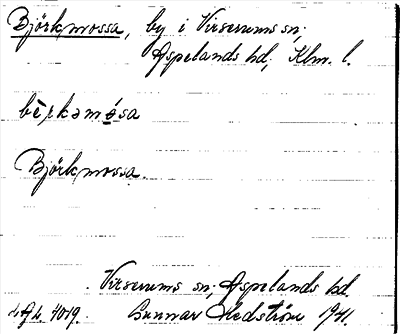 Björkmossa, by i Virserums sn;
Aspelands hd; Klm. l.
bèrkamósa
Björkmossa.
Virserums sn; Aspelands hd.
Gunnar Hedström 1941